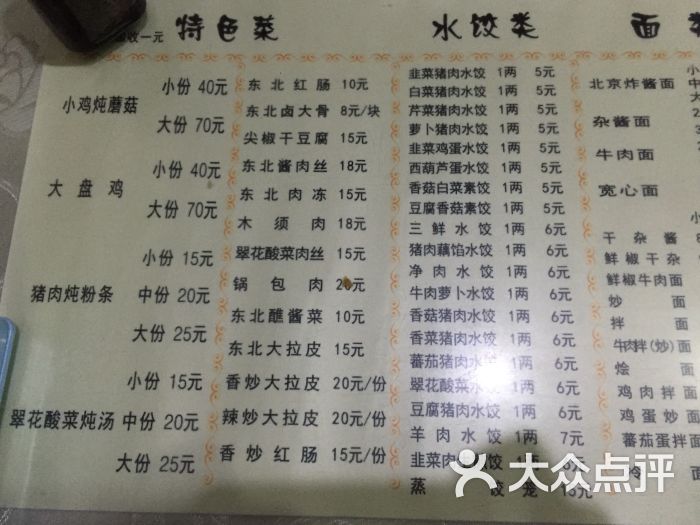 收一元
特色菜
小鸡炖蘑菇
小份 40元
大份 70元
大盘鸡
小份 40元
大份 70元
猪肉炖粉条
小份 15元
中份 20元
大份 25元
翠花酸菜炖汤
小份 15元
中份 20元
大份 25元
东北红肠 10元
东北卤大骨 8元/块
尖椒干豆腐 15元
东北酱肉丝 18元
东北肉冻 15元
木须肉 18元
翠花酸菜肉丝 15元
锅包肉 20元
东北蘸酱菜 10元
东北大拉皮 15元
香炒大拉皮 20元/份
辣炒大拉皮 20元/份
香炒红肠 15元/份
水饺类
韭菜猪肉水饺 1两 5元
白菜猪肉水饺 1两 5元
芹菜猪肉水饺 1两 5元
萝卜猪肉水饺 1两 5元
韭菜鸡蛋水饺 1两 5元
西葫芦蛋水饺 1两 5元
香菇白菜素饺 1两 5元
豆腐香菇素饺 1两 5元
三鲜水饺 1两 6元
猪肉藕馅水饺 1两 6元
净肉水饺 1两 6元
牛肉萝卜水饺 1两 6元
香菇猪肉水饺 1两 6元
香菜猪肉水饺 1两 6元
蕃茄猪肉水饺 1两 6元
翠花酸菜水饺 1两 6元
豆腐猪肉水饺 1两 6元
羊肉水饺 1两 7元
韭菜肉
蒸饺 笼 15元
面类
北京炸酱面
杂酱面
牛肉面
宽心面
干杂酱
鲜椒干杂
鲜椒牛肉面
炒面
拌面
牛肉拌(炒)面
烩面
鸡肉拌面
鸡蛋炒面
蕃茄蛋拌面
冷面
大众点评